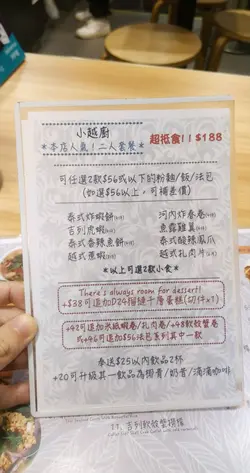 小越廚
*本店人氣!二人套餐* 超抵食!!$188
可任選2款$56或以下的粉麵/飯/法包
(如選$56以上,可補差價)
泰式炸蝦餅
河內炸春卷
吉列虎蝦
魚露雞翼
泰式香辣魚餅
泰式酸辣鳳爪
越式蔗蝦
越式扎肉片
*以上可選2款小食*
There's always room for dessert!
+$38可追加D24榴槤千層蛋糕(切件×1)
+42可追加米紙蝦卷/扎肉卷/+48軟殼蟹卷
或+46可追加$56法包系列其中一款
奉送$25以內飲品2杯
+20可升級其一飲品為 / /滴滴咖啡
17. 吉列軟殼蟹撈檬